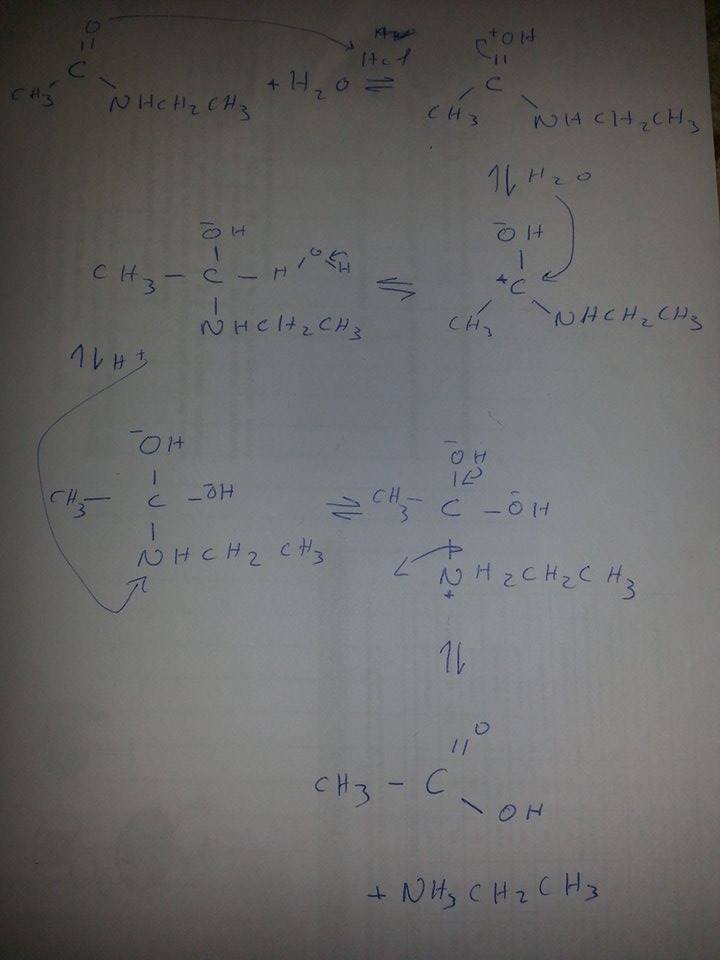 O
||
C
CH3 NHCH2CH3 + H2O ⇌ HCl
+OH
||
C
CH3 NHCH2CH3
⇅ H2O
O̅H
|
+C
CH3 NHCH2CH3
⇌
O̅H
|
CH3 – C – H O H
|
NHCH2CH3
⇅ H+
O̅H
|
CH3 – C – O̅H
|
NHCH2CH3
⇌
O̅H
|
CH3 – C – O̅H
|
NH2CH2CH3
+
⇅
O
||
CH3 – C
OH
+ NH3CH2CH3